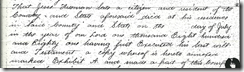 That Jesse Thomas late a citizen and resident of the
County and State aforesaid died at his residence
in said County and State on the day of July
in the year of our Lord one thousand Eight hundred
and Eighty one having first Executed his last will
and Testament a copy whereof is hereto annexed
marked Exhibit A and made a part of this